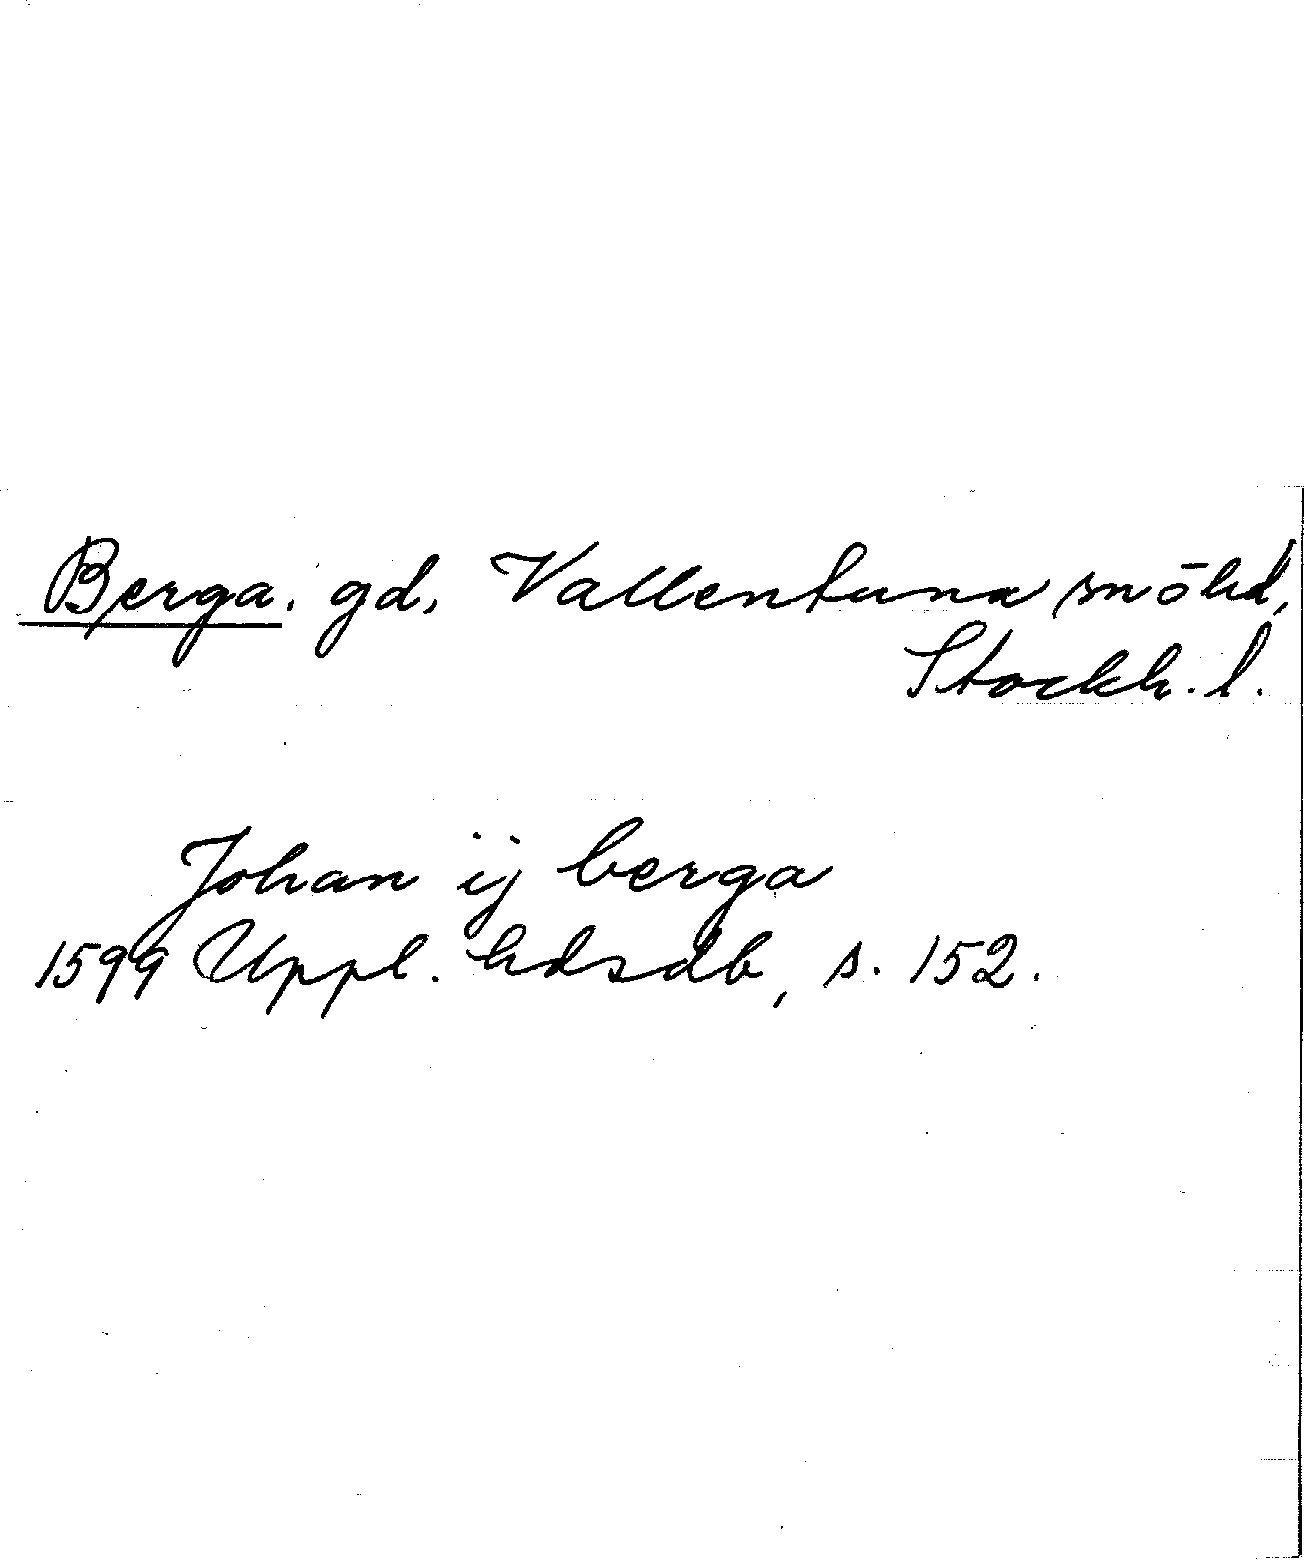 Berga. gd, Vallentuna sn o hd,
Stockh. l.
Johan ij berga
1599 Uppl. hdsdb, s. 152.